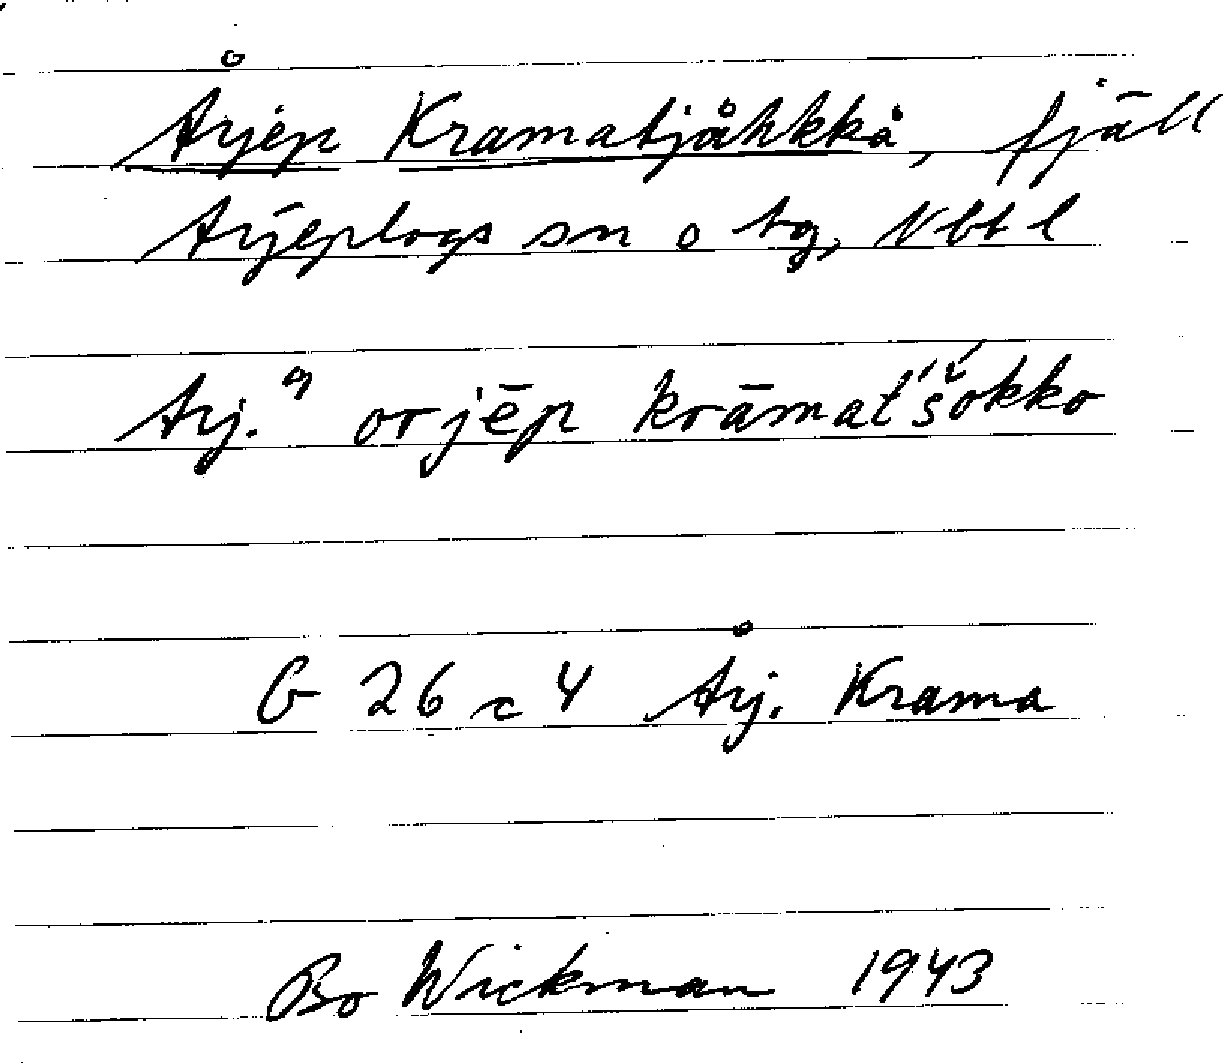 Årjep Kramatjåhkkå, fjäll
Arjeplogs sn o tg, Vbt l
Arj. a orjēp krāmat'šokko
G 26 c 4 Årj. Krama
Bo Wickman 1943